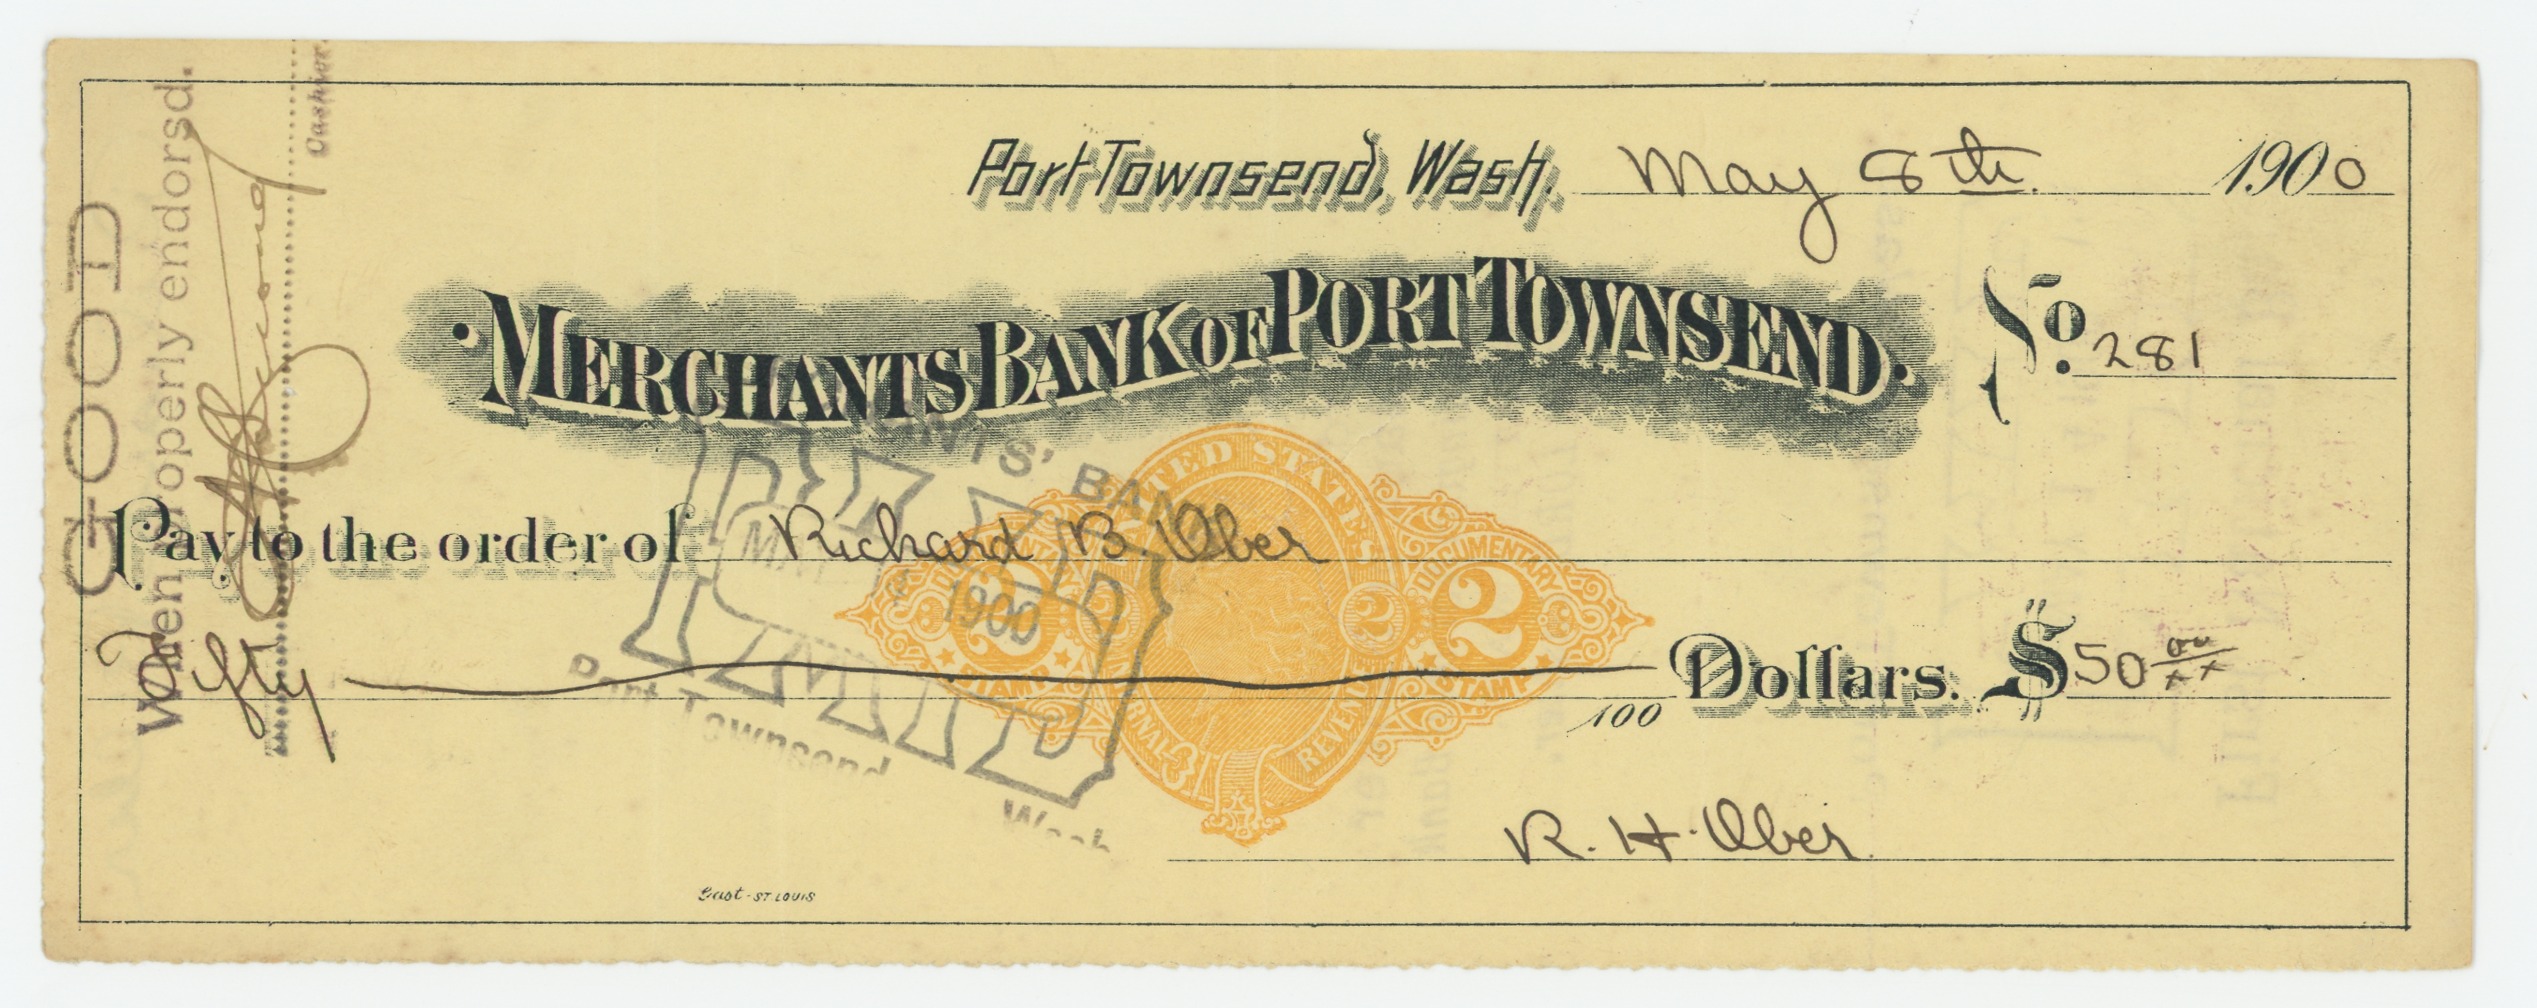 Port Townsend, Wash. May 8th. 1900
MERCHANTS BANK OF PORT TOWNSEND.
No. 281
Pay to the order of Richard B. Ober
Fifty /100 Dollars. $50 00/xx
R. H. Ober
Gast - ST. LOUIS
GOOD
When properly endorsd.
Cashier.
MERCHANTS' BANK
PAID
MAY 1900
Port Townsend
Wash
UNITED STATES
INTERNAL REVENUE
DOCUMENTARY
2 2 2 2
STAMP STAMP